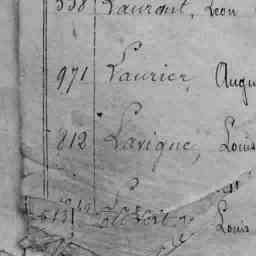 558 Laurent, Léon
971 Laurier, Augu
812 Lavigne, Louis
Louis